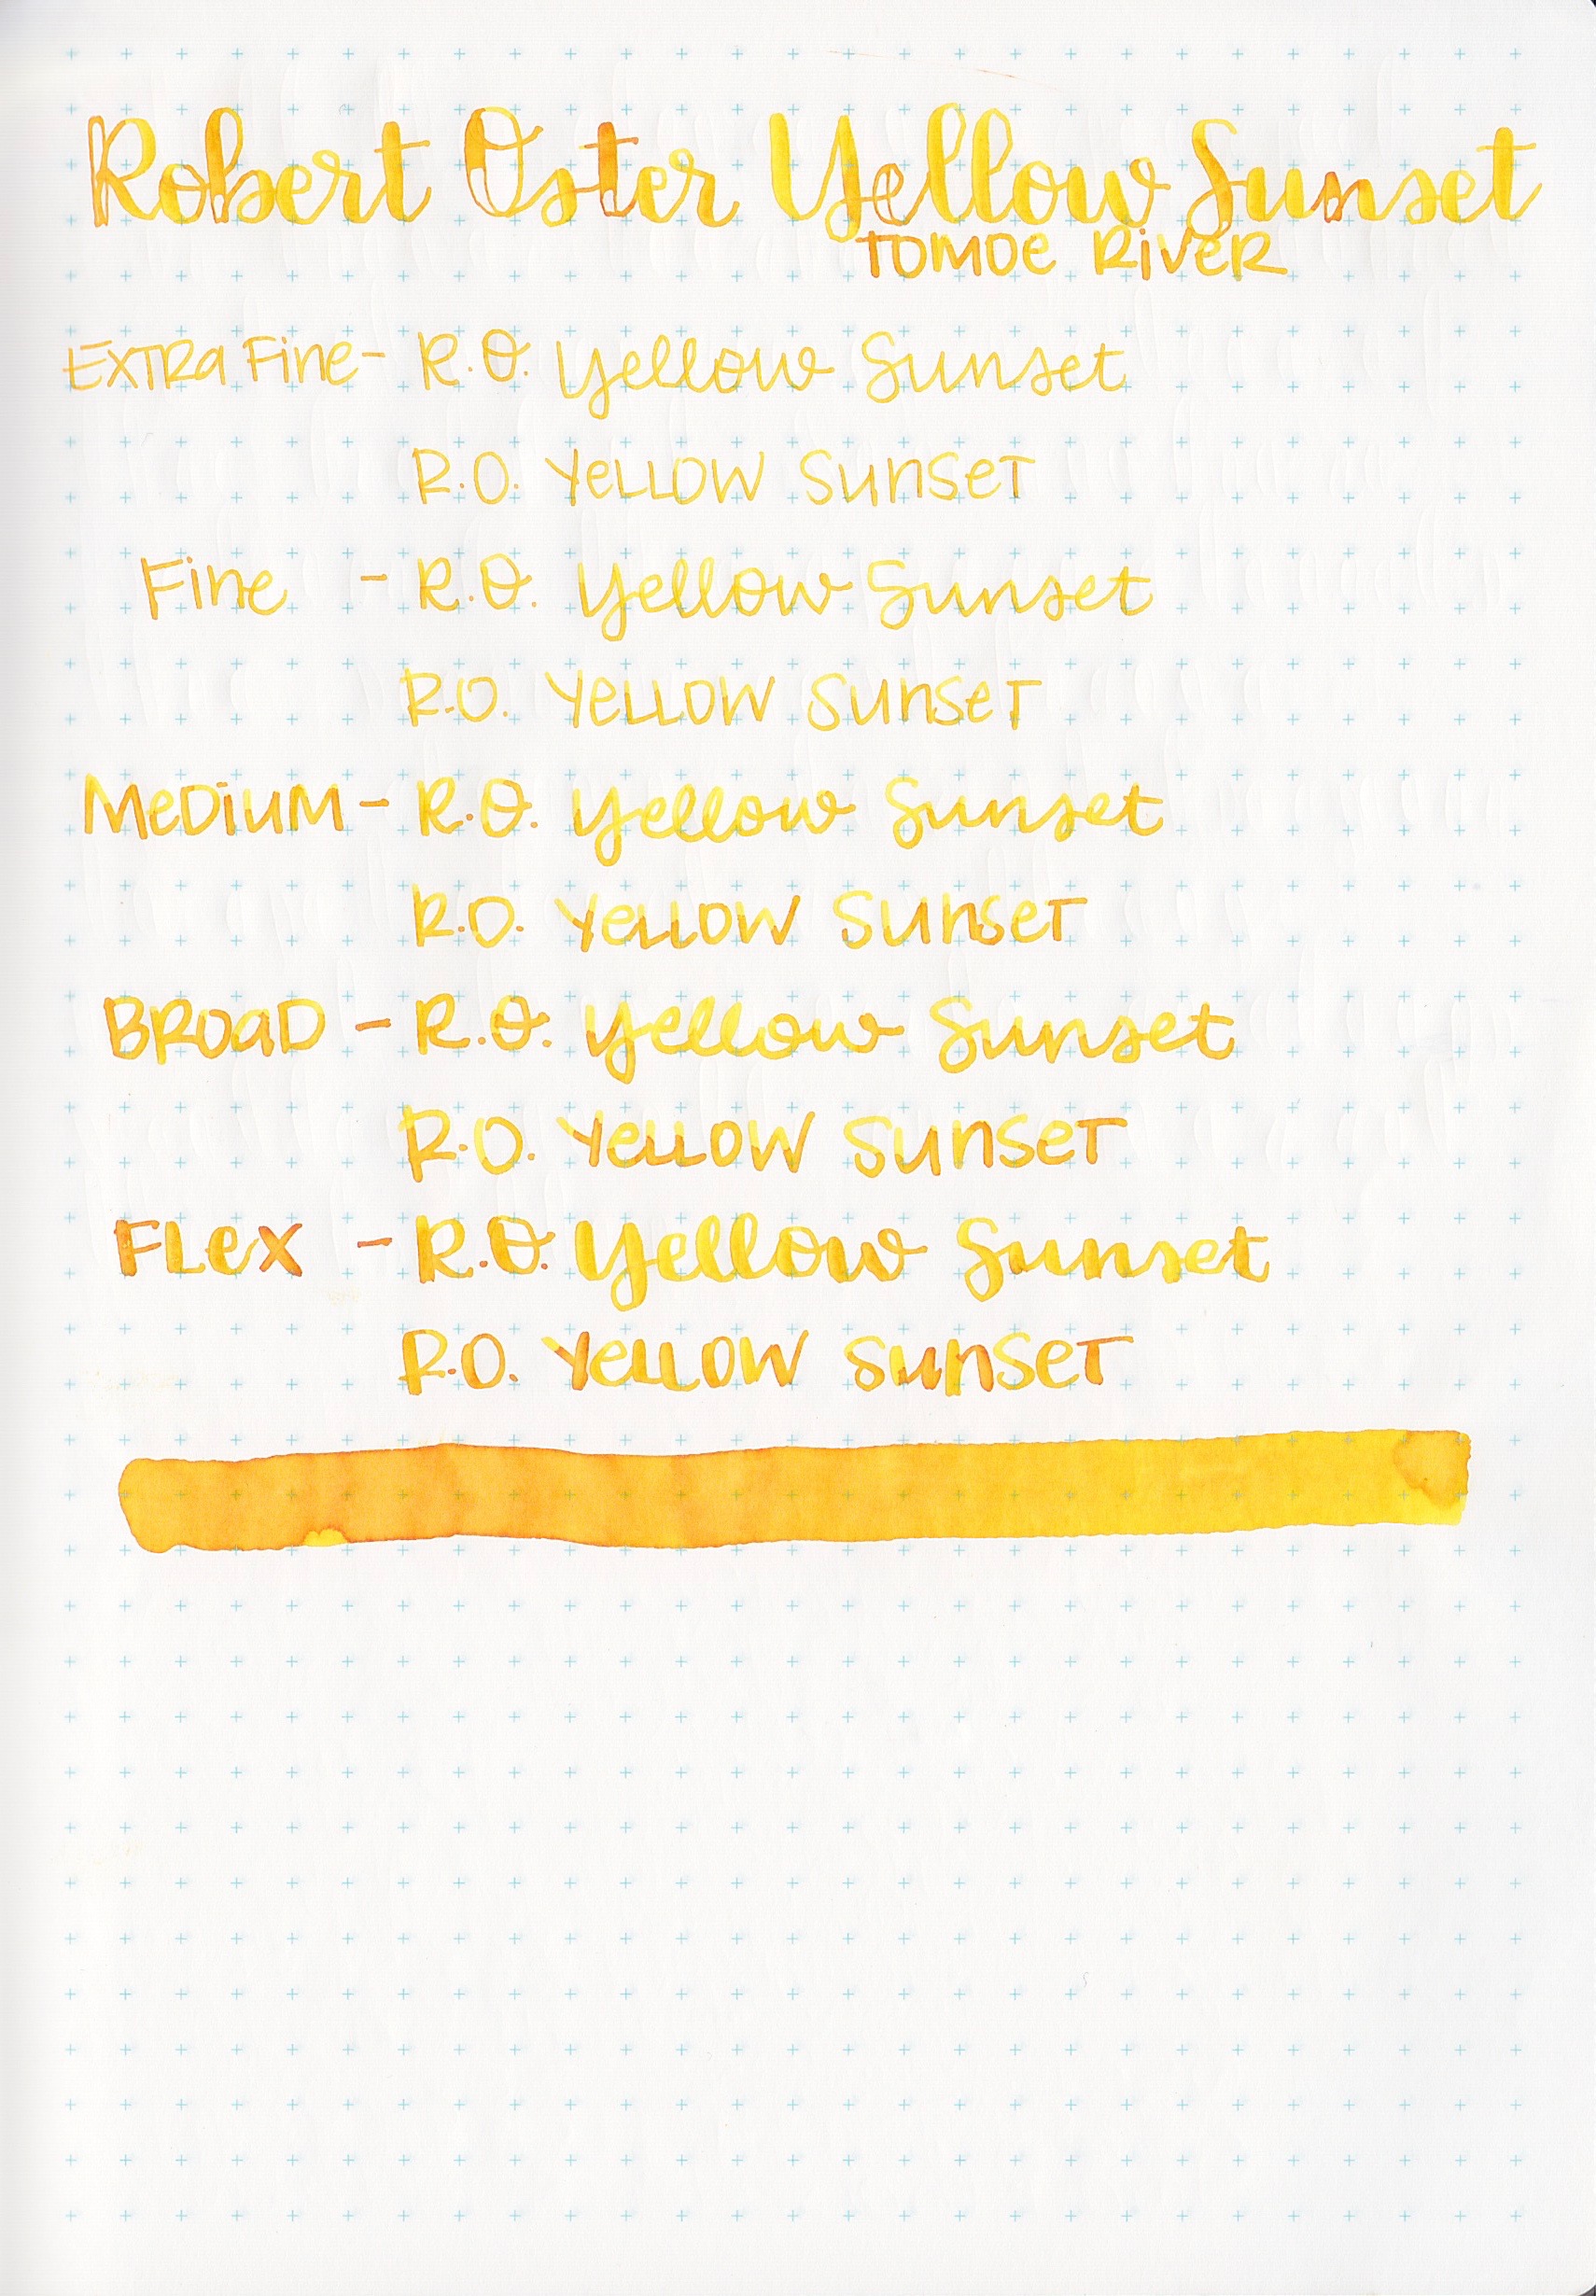 Robert Oster Yellow Sunset
TOMOE RIVER
EXTRA FINE - R.O. Yellow Sunset
R.O. YELLOW SUNSET
FINE - R.O. Yellow Sunset
R.O. YELLOW SUNSET
MEDIUM - R.O. Yellow Sunset
R.O. YELLOW SUNSET
BROAD - R.O. Yellow Sunset
R.O. YELLOW SUNSET
FLEX - R.O. Yellow Sunset
R.O. YELLOW SUNSET